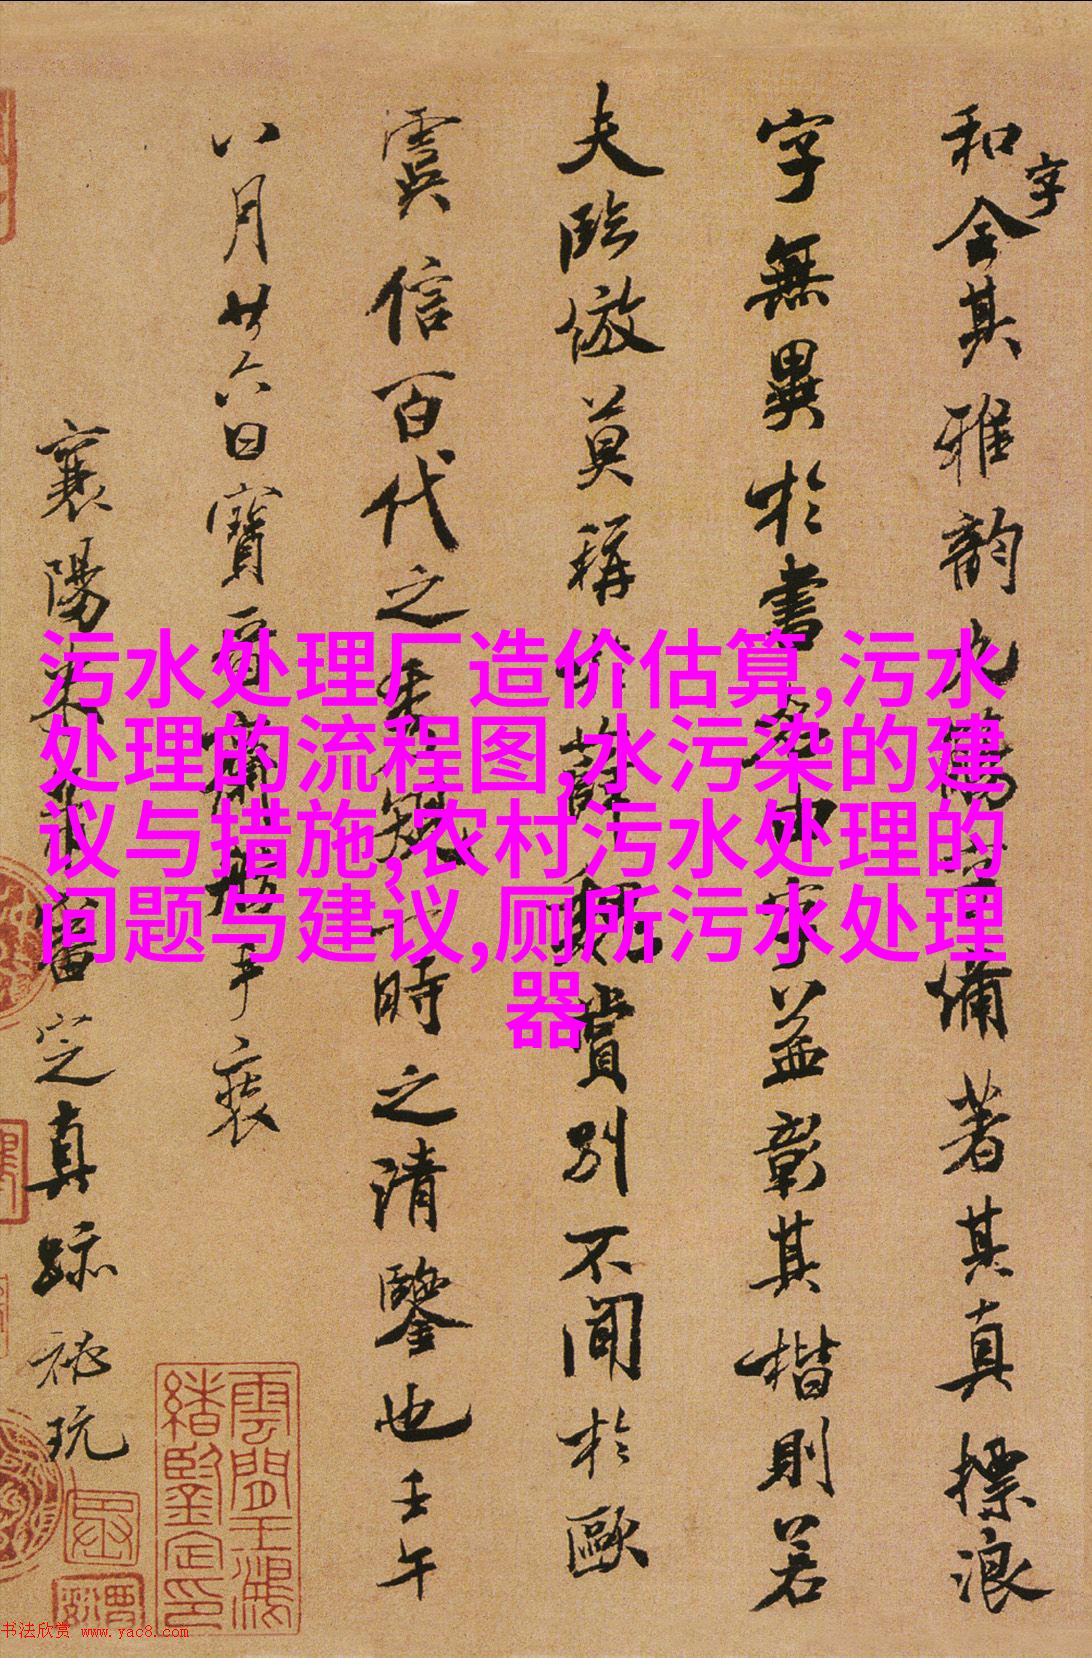 污水处理厂造价估算,污水
处理的流程图,水污染的建
议与措施,农村污水处理的
问题与建议,厕所污水处理
器
和字全其雅韵九
備著其真標浪
字無異於書
字益彰其楷則若
夫臨倣莫稱
賞別不聞於歐
虞信百代之
一時之清鑒也壬午
八月廿六日寶晉
手裝
襄陽米
審定真跡秘玩
雲間王鴻
緒鑒定印
书法欣赏 www.yac8.com